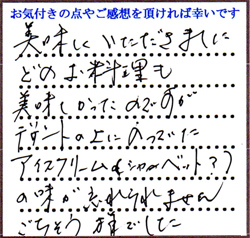 お気付きの点やご感想を頂ければ幸いです
美味しくいただきました
どのお料理も
美味しかったのですが
デザートの上にのってた
アイスクリーム(シャーベット??)
の味が忘れられません
ごちそう様でした